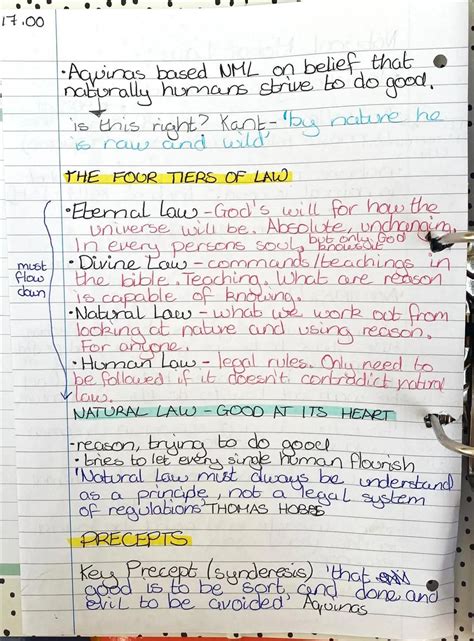 17.00
• Aquinas based NML on belief that
naturally humans strive to do good.
is this right? Kant - 'by nature he
is raw and wild'
THE FOUR TIERS OF LAW
• Eternal Law - God's will for how the
universe will be. Absolute, unchanging.
In every persons soul, but only God knows it
• Divine Law - commands/teachings in
the bible. Teaching. What are reason
is capable of knowing.
must flow down
• Natural Law - what we work out from
looking at nature and using reason.
For anyone.
• Human Law - legal rules. Only need to
be followed if it doesn't contradict natural
law.
NATURAL LAW - GOOD AT ITS HEART
- reason, trying to do good
• tries to let every single human flourish
'Natural Law must always be understand
as a principle, not a legal system
of regulations' THOMAS HOBBS
PRECEPTS
Key Precept (synderesis) 'that
good is to be sort, and done and
evil to be avoided' Aquinas